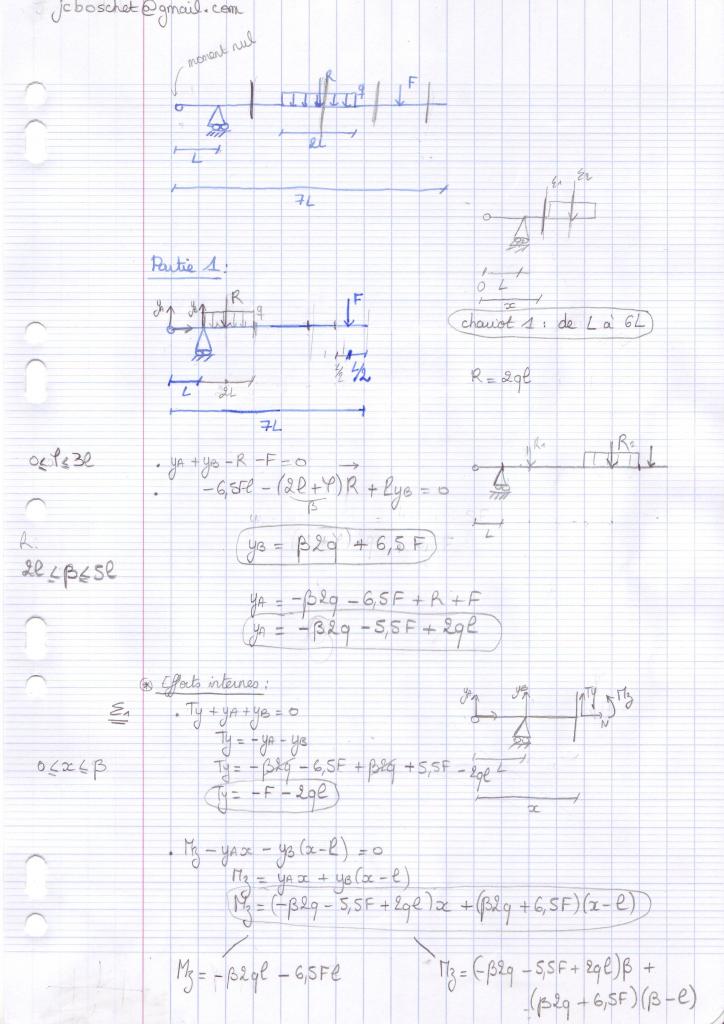 jcboschet@gmail.com
moment nul
R
q
F
2L
L
7L
Σ1
Σ2
0 L
x
Partie 1 :
yA
yB
R
q
F
L
2L
L/2
L/2
7L
chariot 1 : de L à 6L
R = 2ql
R1
R2
L
. yA + yB - R - F = 0
. -6,5Fl - (2l + φ)R + lyB = 0
β
yB = β2q + 6,5F
2l ≤ β ≤ 5l
yA = -β2q - 6,5F + R + F
yA = -β2q - 5,5F + 2ql
⊛ Efforts internes :
Σ1
. Ty + yA + yB = 0
Ty = -yA - yB
0 ≤ x ≤ β
Ty = -β2q - 6,5F + β2q + 5,5F - 2ql
Ty = -F - 2ql
yA
yB
Ty
Mz
N
L
x
. Mz - yAx - yB(x-l) = 0
Mz = yAx + yB(x-l)
Mz = (-β2q - 5,5F + 2ql)x + (β2q + 6,5F)(x-l)
Mz = -β2ql - 6,5Fl
Mz = (-β2q - 5,5F + 2ql)β +
(β2q + 6,5F)(β-l)